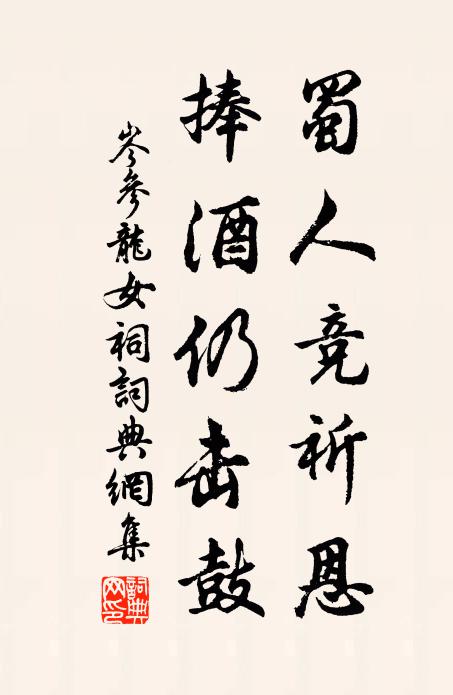 蜀人竞祈恩
捧酒仍击鼓
岑参龍女祠詞典網集
詞典
网印